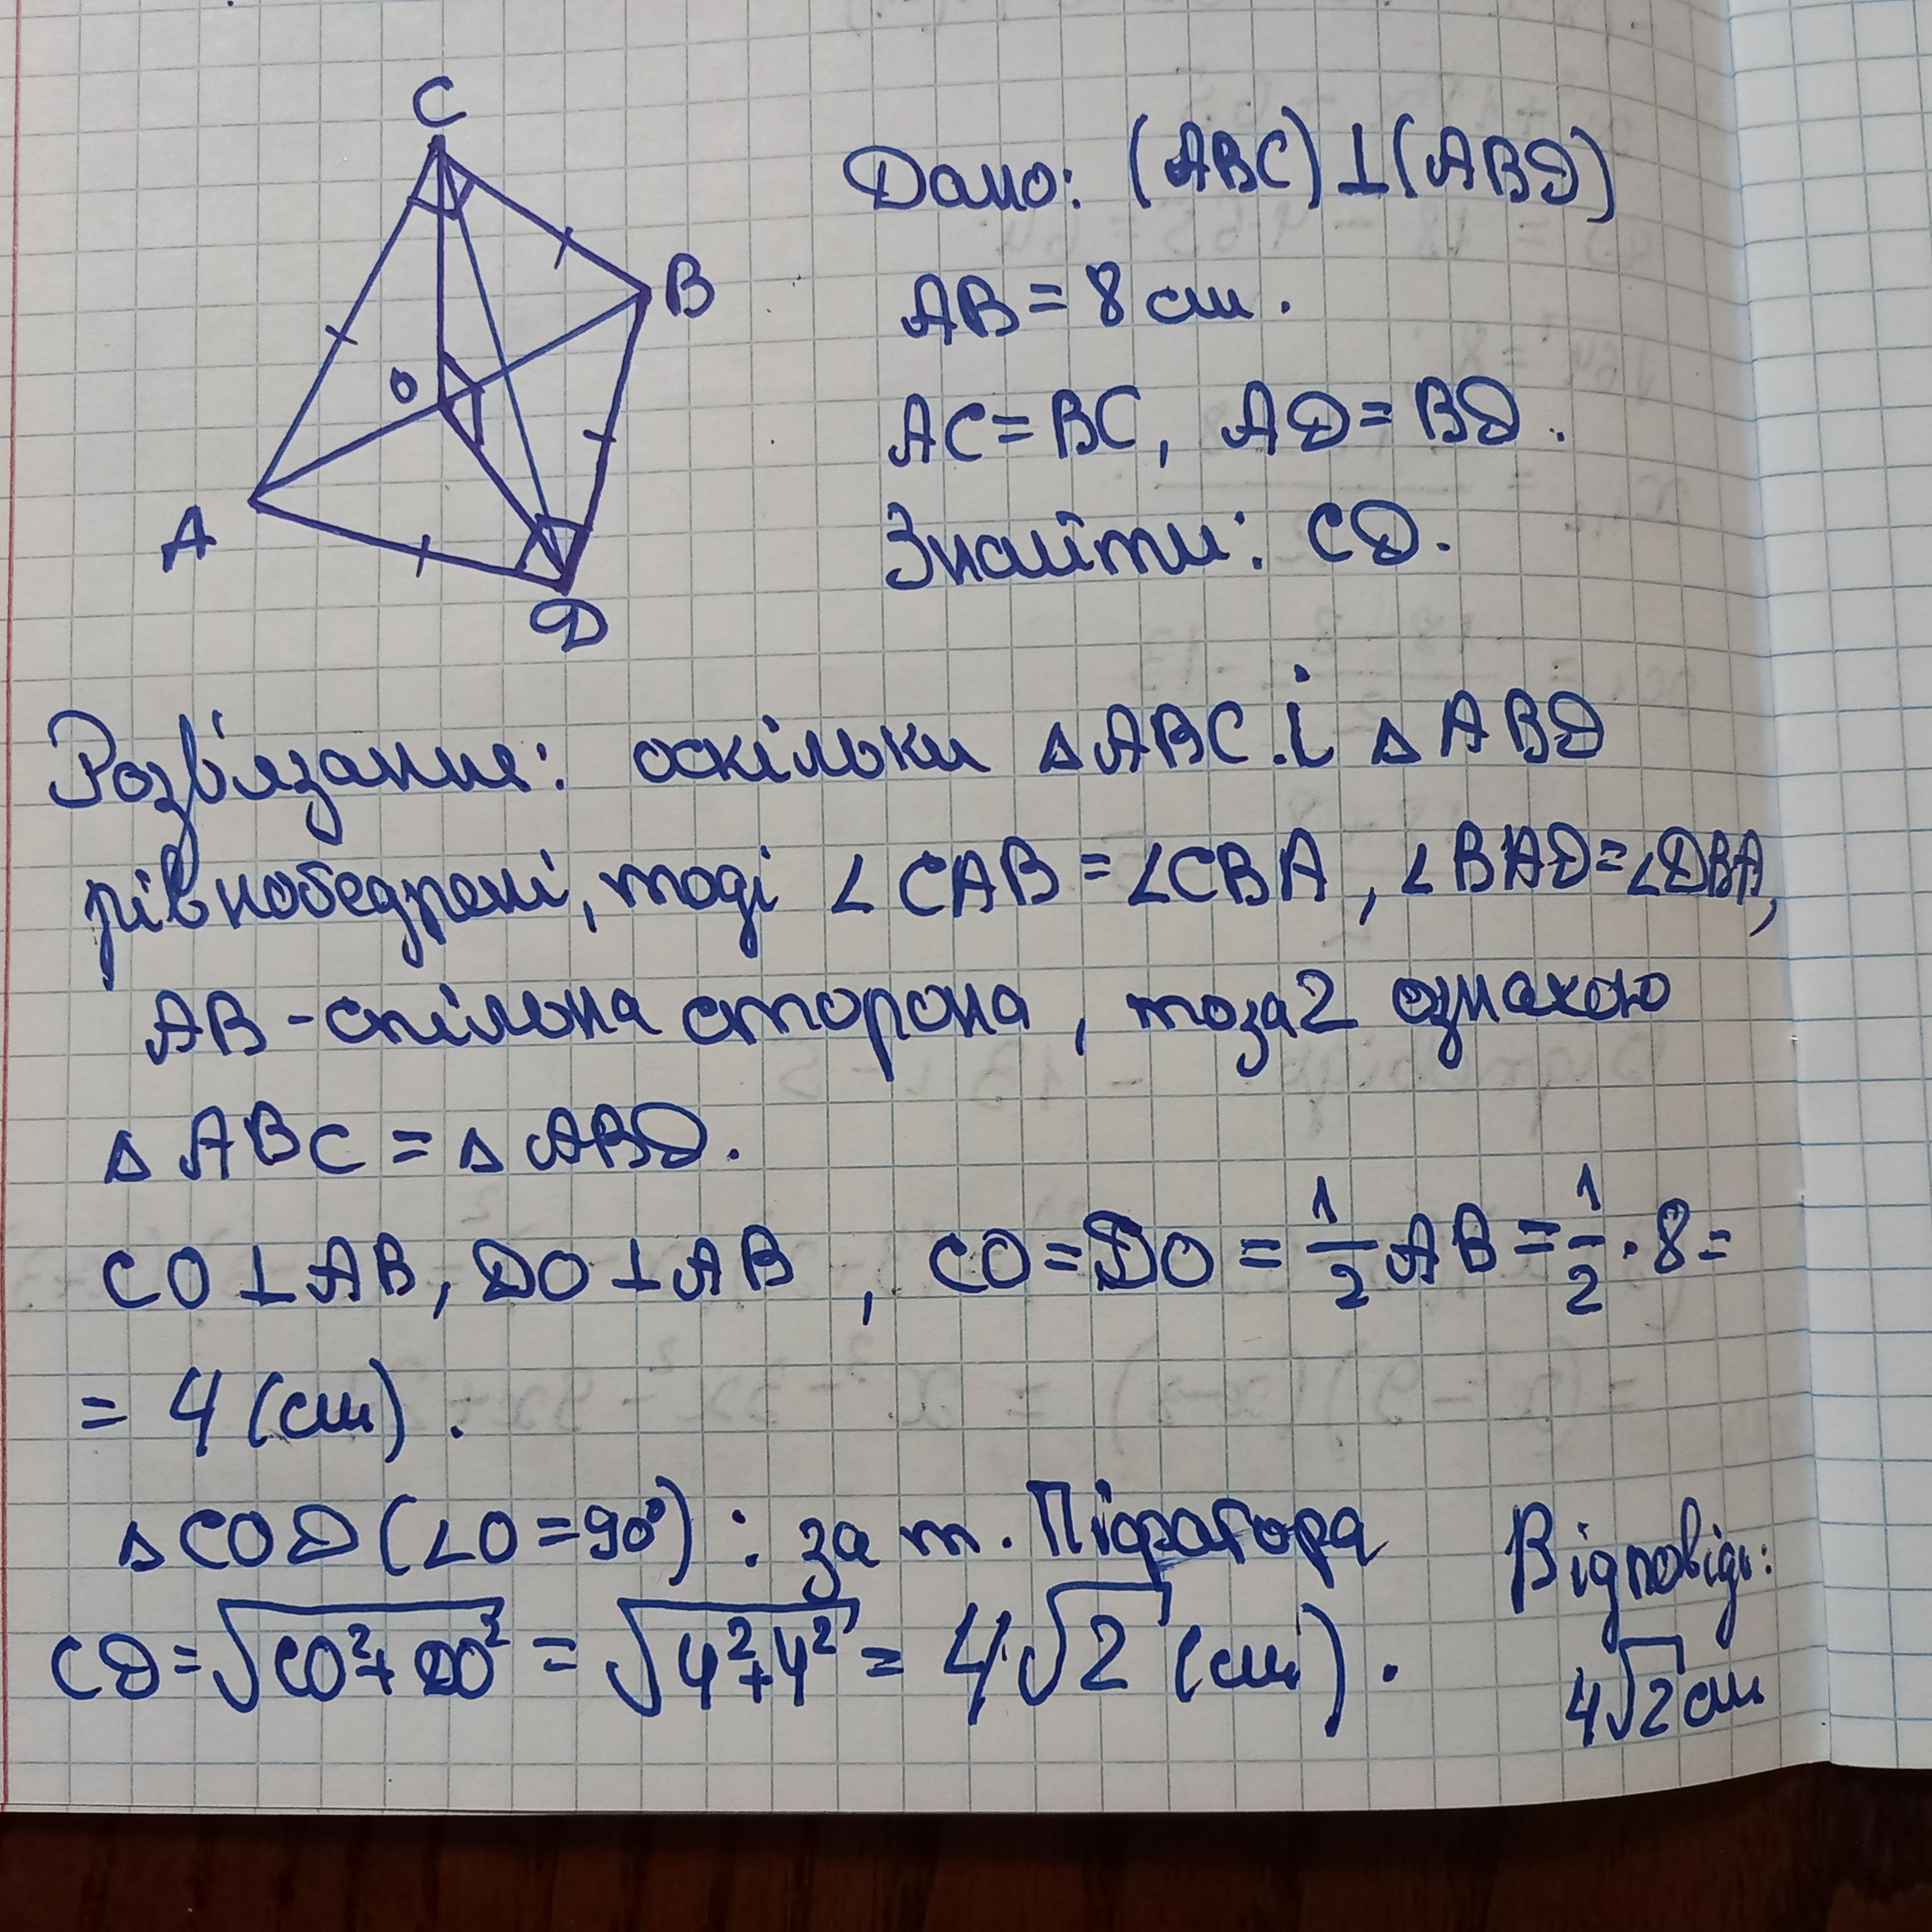 C
B
O
A
D
Дано: (ABC)⊥(ABD)
AB = 8 см.
AC = BC, AD = BD.
Знайти: CD.
Розв'язання: оскільки △ABC і △ABD
рівнобедрені, тоді ∠CAB = ∠CBA, ∠BAD = ∠DBA,
AB - спільна сторона, то за 2 ознакою
△ABC = △ABD.
CO⊥AB, DO⊥AB, CO = DO = 1/2 AB = 1/2 · 8 =
= 4 (см).
△COD (∠O = 90°): за т. Піфагора
CD = √(CO²+DO²) = √(4²+4²) = 4√2 (см).
Відповідь:
4√2 см